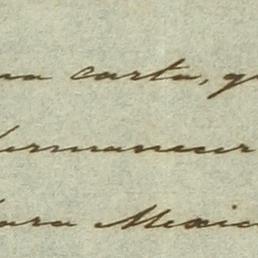 na carta, q
permanecer
para Mexic